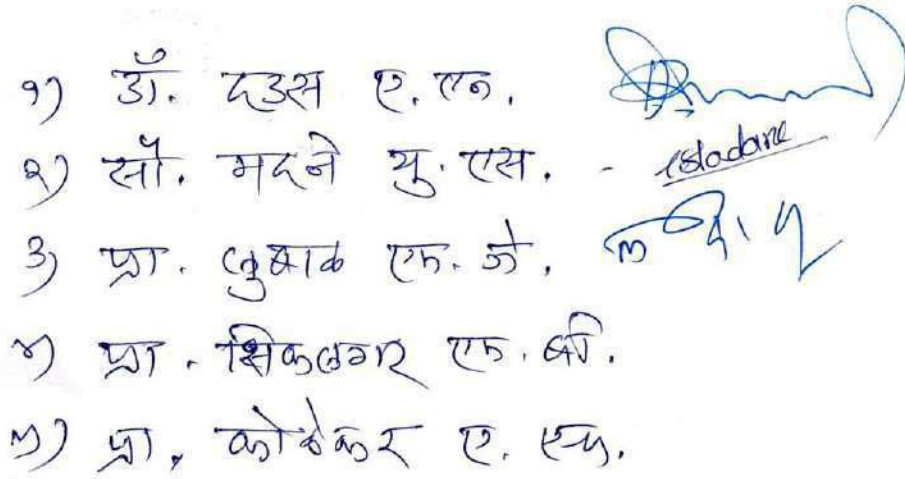 १) डॉ. दउस ए. एन.
२) सौ. मदने यु. एस. - USMadane
३) प्रा. लुबाळ एफ. जे.
४) प्रा. शिकलगार एफ. बी.
५) प्रा. कोठेकर ए. एच.